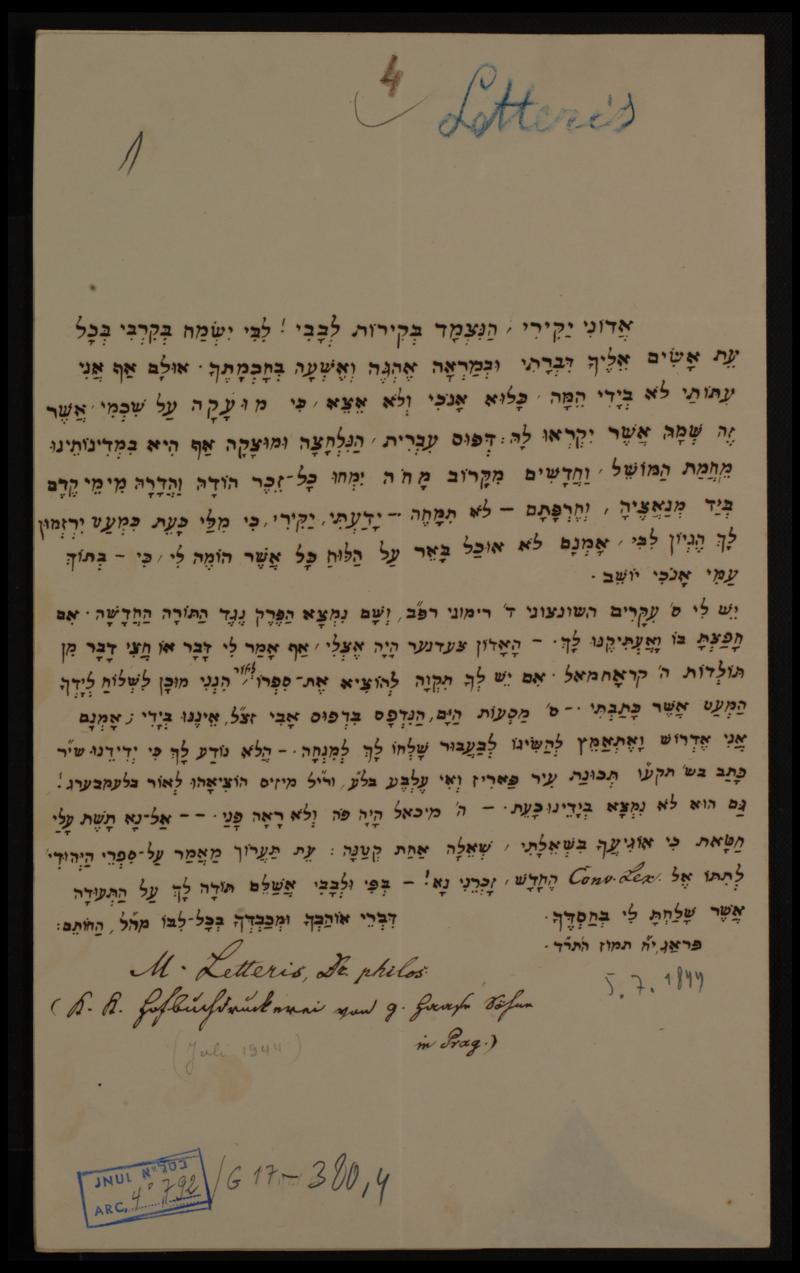 4
Letteris
1
אֲדוֹנִי יַקִּירִי, הַנִּצְמָד בְּקִירוֹת לְבָבִי! לִבִּי יִשְׂמַח בְּקִרְבִּי בְּכָל
עֵת אָשִׂים אֵלֶיךָ דִּבְרָתִי וּבְמַרְאָה אֶהְגֶּה וְאֶשְׁעָה בְּחָכְמָתֶךָ. אוּלָם אַף אֲנִי
עִתּוֹתַי לֹא בְיָדִי הֵמָּה, כָּלוּא אָנֹכִי וְלֹא אֵצֵא, כִּי מוּעָקָה עַל שִׁכְמִי, אֲשֶׁר
זֶה שְׁמָהּ אֲשֶׁר יִקְרְאוּ לָהּ: דְּפוּס עִבְרִית, הַנִּלְחָצָה וּמוּצָקָה אַף הִיא בִּמְדִינוֹתֵינוּ
מֵחֲמַת הַמּוֹשֵׁל, וַחֲדָשִׁים מִקָּרוֹב מָחֹה יִמְחוּ כָּל־זֵכֶר הוֹדָהּ וַהֲדָרָהּ מִימֵי קֶדֶם
בְּיַד מְנַאֲצֶיהָ, וְחֶרְפָּתָם – לֹא תִמָּחֶה – יָדַעְתִּי, יַקִּירִי, כִּי מִלַּי כָּעֵת כִּמְעַט יִרְזְמוּן
לָךְ הֶגְיוֹן לִבִּי, אָמְנָם לֹא אוּכַל בָּאֵר עַל הַלּוּחַ כָּל אֲשֶׁר הוֹמֶה לִי, כִּי – בְּתוֹךְ
עַמִּי אָנֹכִי יוֹשֵׁב.
יֵשׁ לִי ס' עִקָּרִים השונצוני ד' רימוני רפ"ב, וְשָׁם נִמְצָא הַפֶּרֶק נֶגֶד הַתּוֹרָה הַחֲדָשָׁה. אִם
חָפַצְתָּ בּוֹ וָאַעְתִּיקֶנּוּ לָךְ. – הָאָדוֹן צעדנער הָיָה אֶצְלִי, אַף אָמַר לִי דָּבָר אוֹ חֲצִי דָבָר מִן
תּוֹלְדוֹת ה' קראָחמאל. אִם יֵשׁ לְךָ תִקְוָה לְהוֹצִיא אֶת־סִפְרוֹ לאור, הִנְנִי מוּכָן לִשְׁלוֹחַ לְיָדְךָ
הַמְּעַט אֲשֶׁר כָּתַבְתִּי. – ס' מַסְעוֹת הַיָּם, הַנִּדְפָּס בִּדְפוּס אָבִי זצ"ל, אֵינֶנּוּ בְּיָדִי; אָמְנָם
אֲנִי אֶדְרוֹשׁ וָאֶתְאַמֵּץ לְהַשִּׂיגוֹ לְבַעֲבוּר שָׁלְחוֹ לָךְ לְמִנְחָה. – הֲלֹא נוֹדַע לָךְ כִּי יְדִידֵנוּ שי"ר
כָּתַב בש' תקע"ו תְּכוּנַת עִיר פאַריז וְאִי עֶלְבֶּע בלע"ז, ור"יל מיזיס הוֹצִיאָהוּ לְאוֹר בלעמבערג!
גַּם הוּא לֹא נִמְצָא בְיָדֵינוּ כָּעֵת. – ה' מיכאל הָיָה פֹּה וְלֹא רָאָה פָּנַי. – – אַל־נָא תָשֶׁת עָלַי
חַטָּאת כִּי אוֹגִיעֲךָ בִּשְׁאֵלָתִי, שְׁאֵלָה אַחַת קְטַנָּה: עֵת תַּעֲרוֹךְ מַאֲמַר עַל־סִפְרֵי הַיְּהוּדִי'
לְתִתּוֹ אֶל Conv. Lex. הֶחָדָשׁ, זָכְרֵנִי נָא! – בְּפִי וּלְבָבִי אֲשַׁלֵּם תּוֹדָה לָךְ עַל הַתְּעוּדָה
אֲשֶׁר שָׁלַחְתָּ לִי בְּחַסְדֶּךָ. דִּבְרֵי אוֹהַבְךָ וּמְכַבֶּדְךָ בְּכָל־לִבּוֹ מה"ל, הַחוֹתֵם:
פראַג, י"ח תמוז התר"ד.
M. Letteris, Dr. philos.
5.7.1844
(K. K. Hofbuchdruckerei von G. Haase Söhne
in Prag.)
(Juli 1944)
בסל"א JNUL
ARC. 4° 792 / G 17 – 380,4